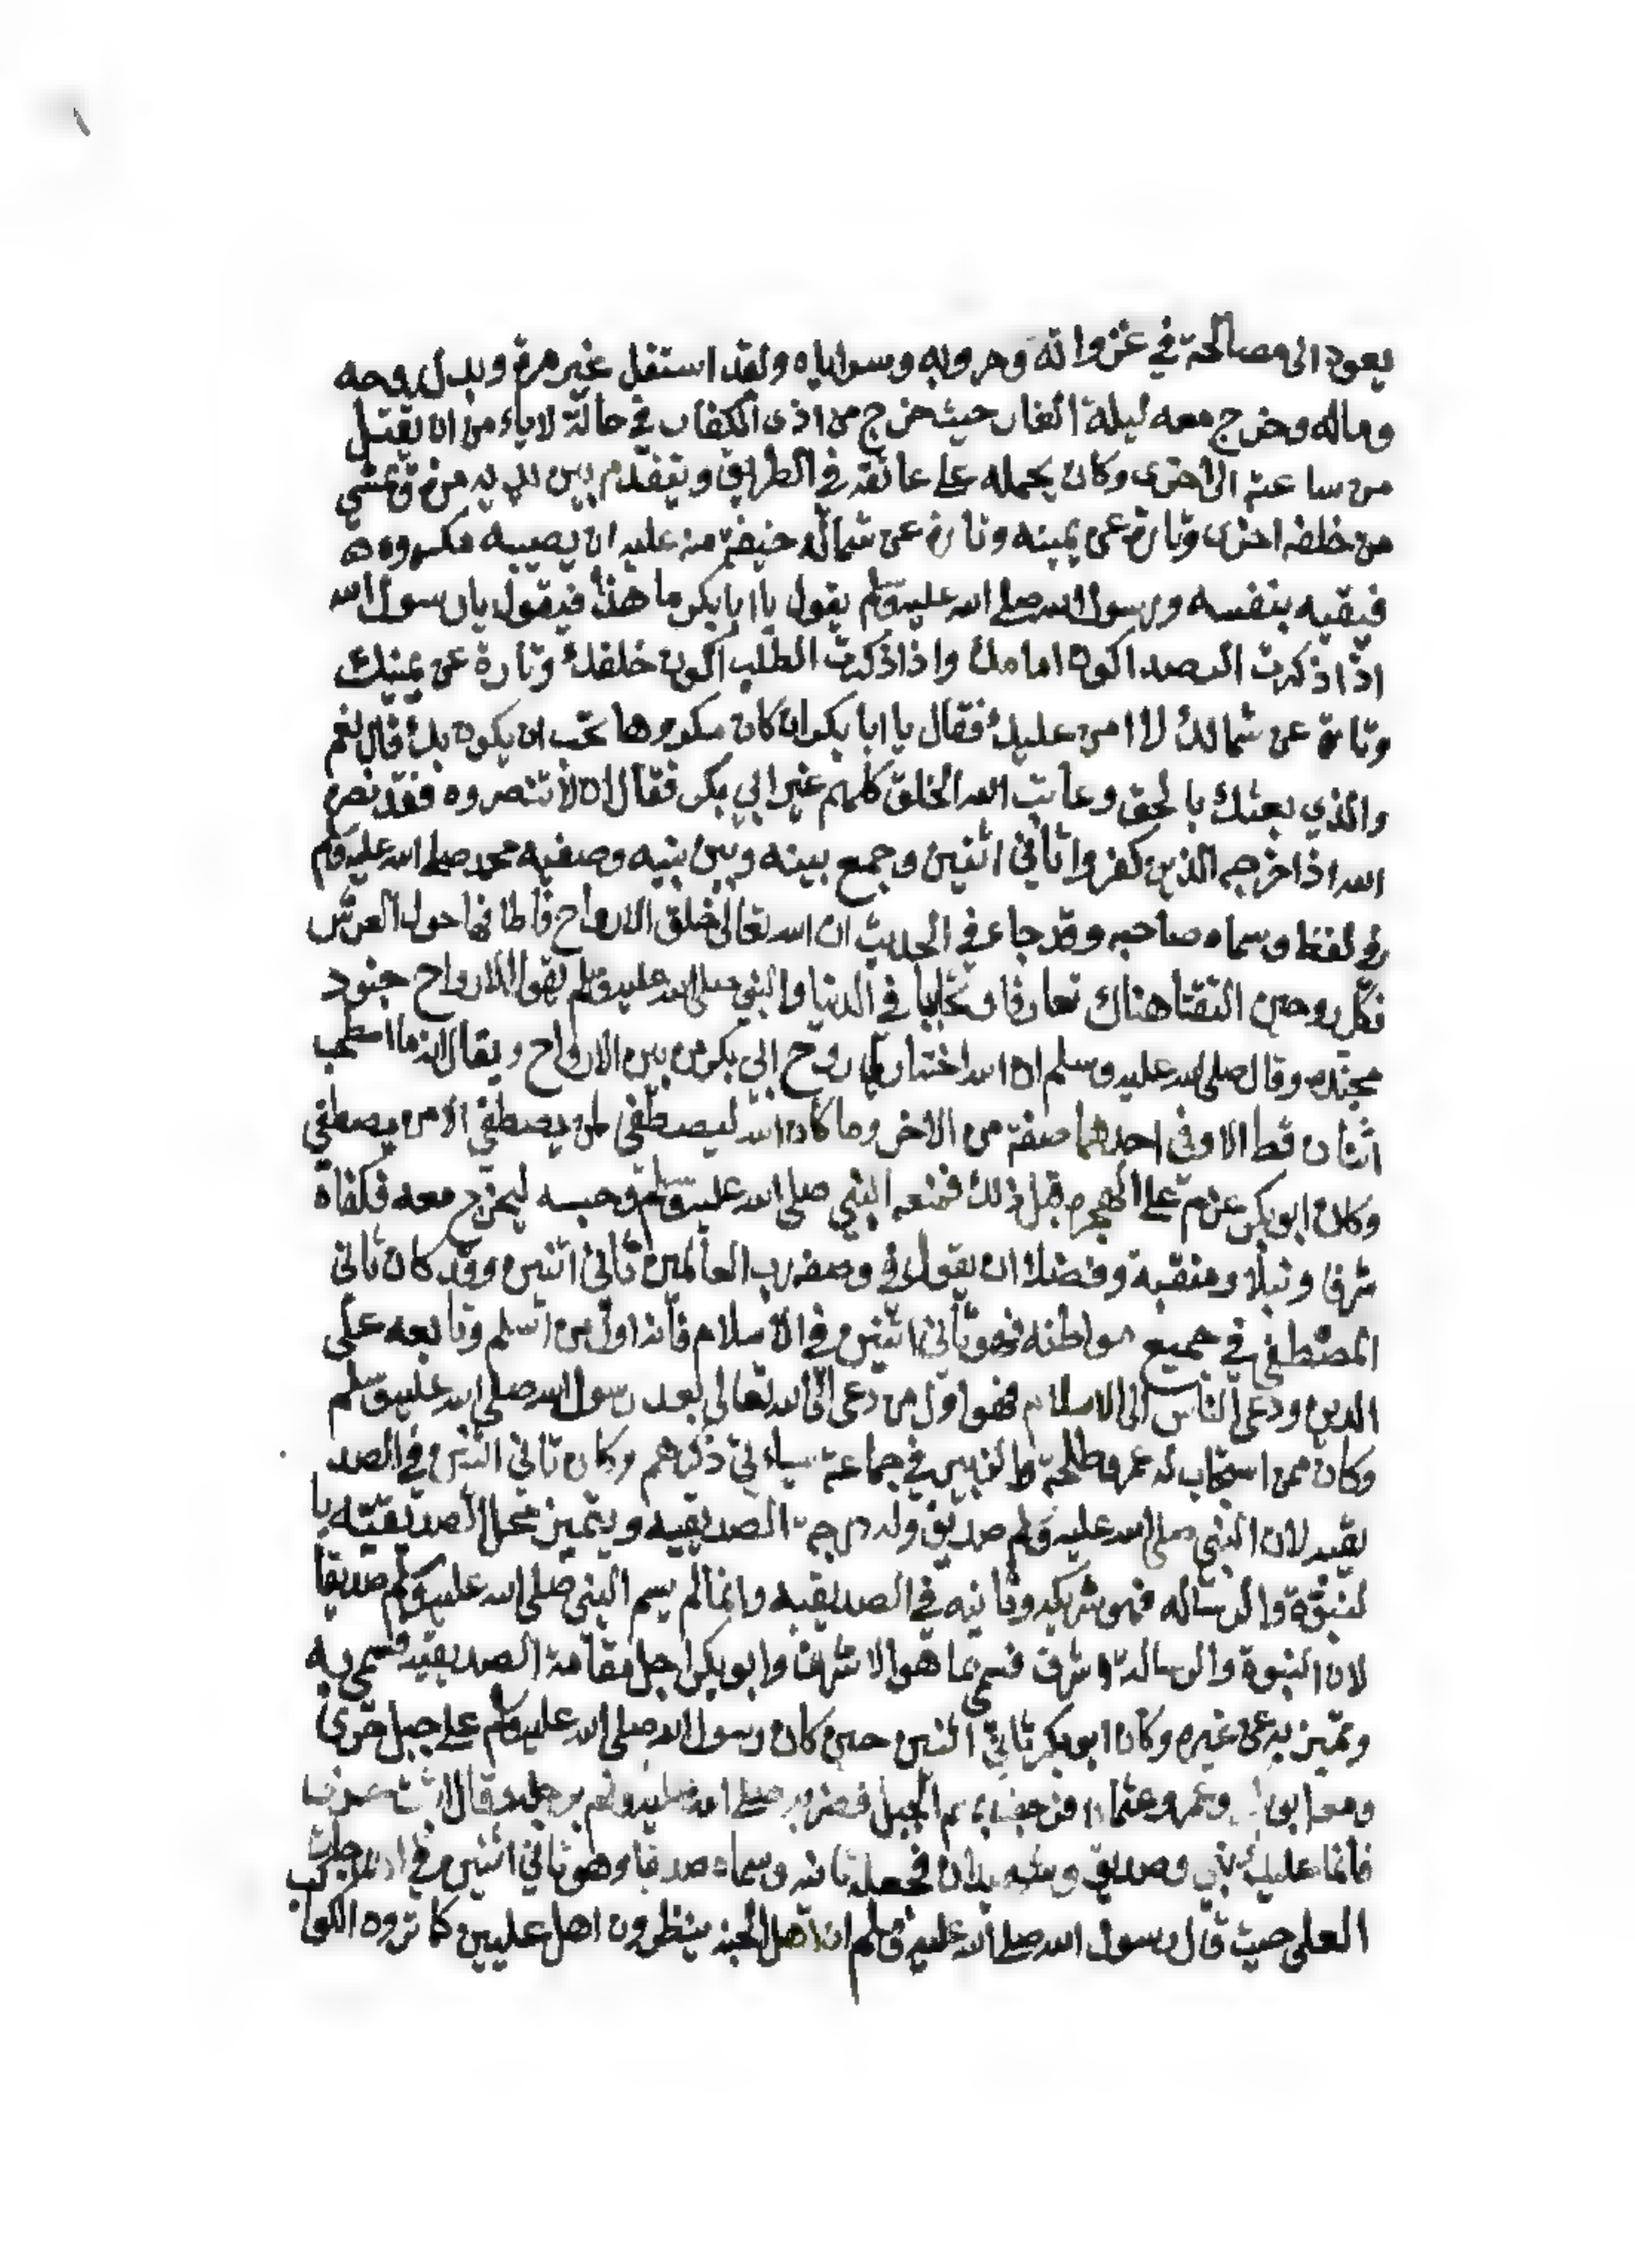 يعود الى مصالحة في غزواته وحروبه وسراياه ولقد استقل غير مرة وبذل روحه
وماله وخرج معه ليلة الغار حيث خرج من اذى الكفار في حالة لا ياء من ان يقتل
من ساعته الى اخرى وكان يحمله على عاتقه في الطريق ويتقدم بين يديه مرة ويمشي
من خلفه اخرى وتارة عن يمينه وتارة عن شماله خيفة منه عليه ان يصيبه مكروه
فيقيه بنفسه ورسول الله صلى الله عليه وسلم يقول يا ابا بكر ما هذا فيقول يا رسول الله
اذا ذكرت الرصد اكون امامك واذا ذكرت الطلب اكون خلفك وتارة عن يمينك
وتارة عن شمالك لا امن عليك فقال يا ابا بكر ان كان مكروها تحب ان يكون بك قال نعم
والذي بعثك بالحق وعاتب الله الخلق كلهم غير ابي بكر فقال ان لا تنصروه فقد نصره
الله اذ اخرجه الذين كفروا ثاني اثنين وجمع بينه وبين نبيه وصفيه محمد صلى الله عليه وسلم
في لفظ وسماه صاحبه وقد جاء في الحديث ان الله تعالى خلق الارواح فاطافها حول العرش
فكل روحين التقتا هناك تعارفا وتحابيا في الدنيا والنبي صلى الله عليه وسلم يقول الارواح جنود
مجنده وقال صلى الله عليه وسلم ان الله اختار لي روح ابي بكر من بين الارواح ويقال انه ما اصطحب
اثنان قط الا وفي احدهما صفة من الاخر وما كان الله ليصطفي لمن يصطفي الا من يصطفي
وكان ابو بكر عزم على الهجره قبل ذلك فمنعه النبي صلى الله عليه وسلم وحبسه ليخرج معه فكفاه
شرفا ونبلا ومنقبة وفضلا ان يقول في وصفه رب العالمين ثاني اثنين وقد كان ثاني
المصطفى في جميع مواطنه فهو ثاني اثنين في الاسلام فانه اول من اسلم وتابعه على
الدين ودعى الناس الى الاسلام فهو اول من دعى الى الله تعالى بعد رسول الله صلى الله عليه وسلم
وكان ممن استجاب له عمر وطلحة والزبير في جماعة سياتي ذكرهم وكان ثاني اثنين في الصد
يقيه لان النبي صلى الله عليه وسلم صديق وله درجة الصديقيه ويتميز عمل الصديقيه با
لنبوة والرساله فهو شريكه وثانيه في الصديقيه وانما لم يسم النبي صلى الله عليه وسلم صديقا
لان النبوة والرسالة اشرف فسمي بما هو الاشرف وابو بكر اجل مقامه الصديقيه فسمي به
وتميز به عن غيره وكان ابو بكر ثاني اثنين حين كان رسول الله صلى الله عليه وسلم على جبل حرى
ومعه ابو وعمر وعثمان فرجف بهم الجبل فضربه صلى الله عليه وسلم برجله وقال اثبت
فانما عليك نبي وصديق وشهيدان فجعله ثانيه وسماه صديقا وهو ثاني اثنين في الدرجات
العلى حيث قال رسول الله صلى الله عليه وسلم ان اهل الجنه ينظرون اهل عليين كما تروه الكواكب